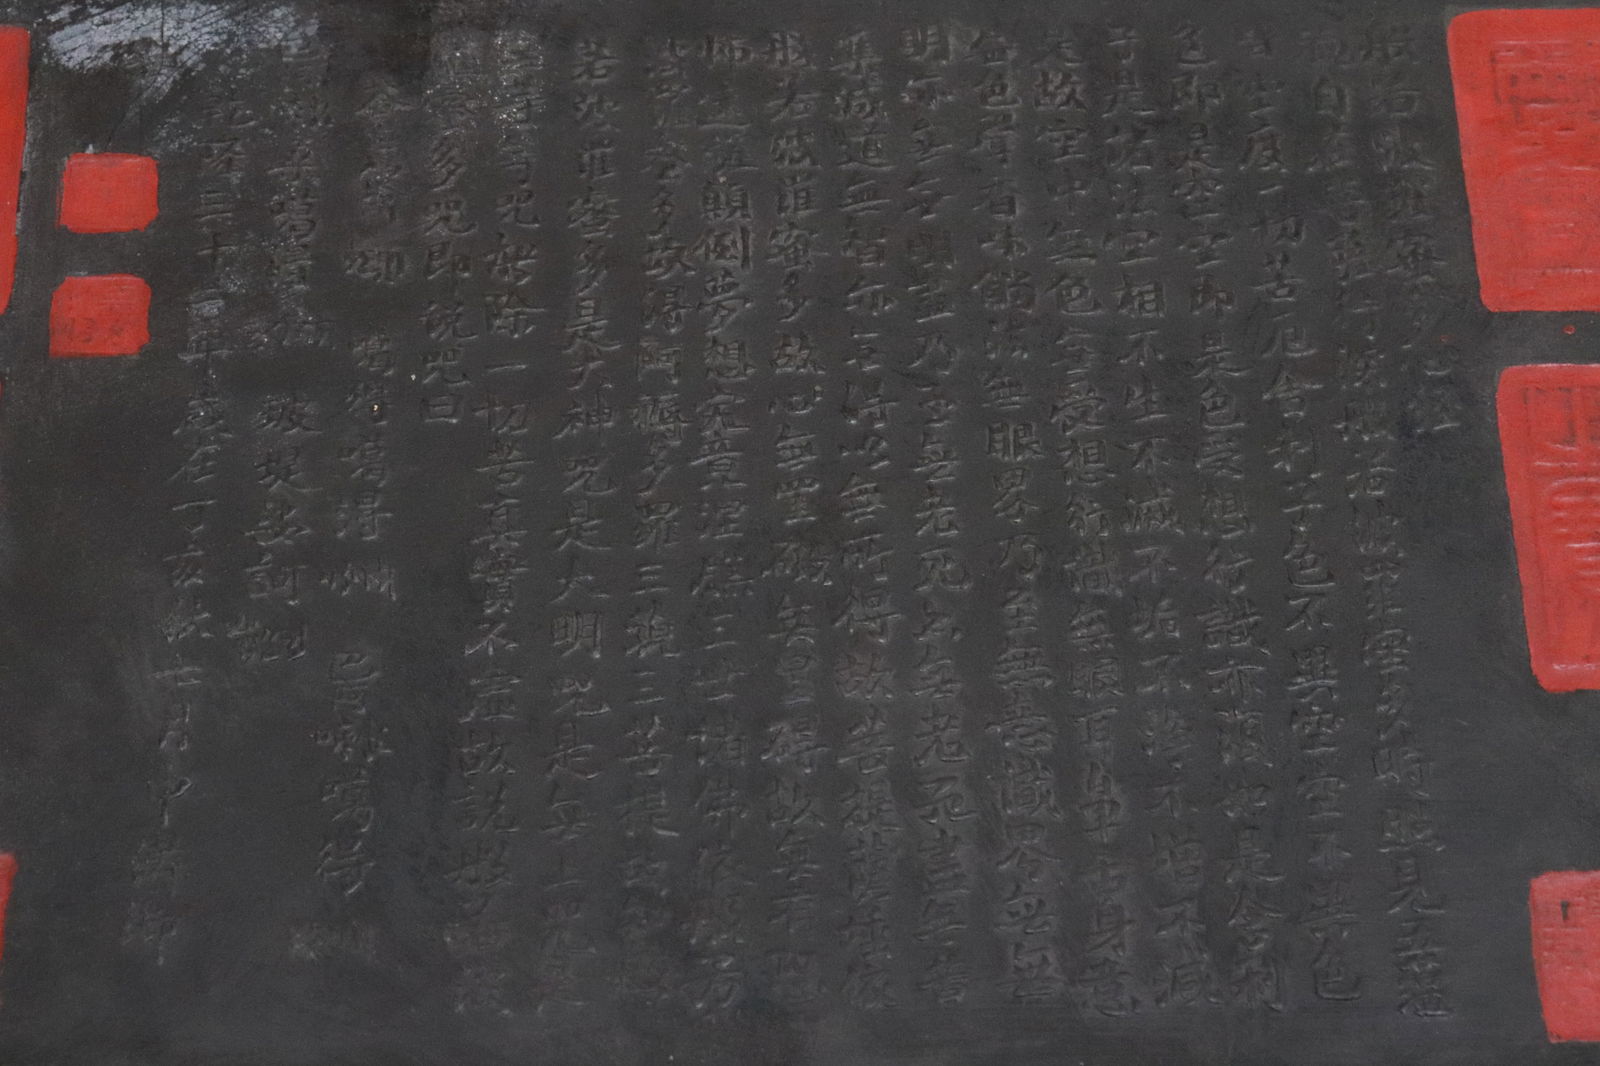 般若波羅蜜多心經
觀自在菩薩行深般若波羅蜜多時照見五蘊
皆空度一切苦厄舍利子色不異空空不異色
色即是空空即是色受想行識亦復如是舍利
子是諸法空相不生不滅不垢不淨不增不減
是故空中無色無受想行識無眼耳鼻舌身意
無色聲香味觸法無眼界乃至無意識界無無
明亦無無明盡乃至無老死亦無老死盡無苦
集滅道無智亦無得以無所得故菩提薩埵依
般若波羅蜜多故心無罣礙無罣礙故無有恐
怖遠離顛倒夢想究竟涅槃三世諸佛依般若
波羅蜜多故得阿耨多羅三藐三菩提故知般
若波羅蜜多是大神咒是大明咒是無上咒是
無等等咒能除一切苦真實不虛故說般若波
羅蜜多咒即說咒曰
噶得噶得 巴喇噶得
桑噶得
乾隆三十二年歲在丁亥秋七月